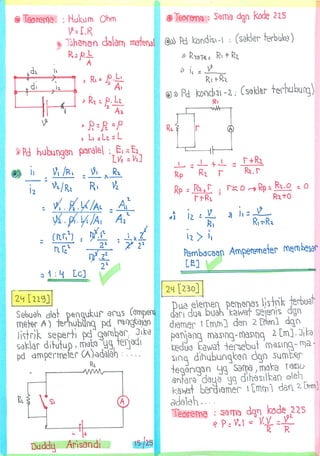 Teorema : Hukum Ohm
V = I.R
Tahanan dalam material
R = ρ.L
A
d₂ i₂
d₁ i₁
V
R₁ = ρ.L₁
A₁
R₂ = ρ.L₂
A₂
ρ₁ = ρ₂ = ρ
L₁ = L₂ = L
Pd hubungan paralel : E₁ = E₂
[V₁ = V₂]
i₁ = V₁/R₁ = V₁ . R₂
i₂ V₂/R₂ R₁ V₂
= 1 : 4 [C]
24 [229]
Sebuah alat pengukur arus (Ampere
meter A) terhubung pd rangkaian
listrik seperti pd gambar. Jika
saklar ditutup, maka yg terjadi
pd ampermeter (A) adalah ....
R₂
R₁
S₁
A
Duddy Arisandi 15/25
Teorema : Sama dgn kode 225
Pd kondisi-1 : (saklar terbuka)
R TOTAL = R₁ + R₂
i₁ = V
R₁ + R₂
Pd kondisi-2 : (saklar terhubung)
R₁
R₂ r A
1 = 1 + 1 = r + R₂
Rp R₂ r R₂.r
Rp = R₂.r ; r ≈ 0 → Rp = R₂.0 = 0
r + R₂ R₂ + 0
i₂ = V ; i₁ = V
R₁ R₁ + R₂
i₂ > i₁
Pembacaan Amperemeter membesar
[E]
24 [230]
Dua elemen pemanas listrik terbuat
dari dua buah kawat sejenis dgn
diemer 1 [mm] dan 2 [mm] dgn
panjang masing-masing 2 [m]. Jika
kedua kawat tersebut masing-ma-
sing dihubungkan dgn sumber
tegangan yg sama, maka rasio
antara daya yg dihasilkan oleh
kawat berdiamer 1 [mm] dan 2 [mm]
adalah ....
Teorema : sama dgn kode 225
P = V.I = V.V = V²
R R